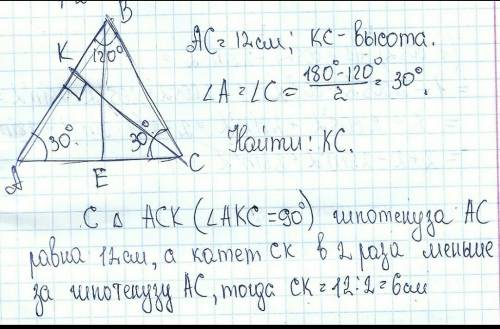 B
K
120°
30°
30°
A
E
C
AC = 12см; KC - высота.
∠A = ∠C = (180° - 120°)/2 = 30°.
Найти: KC.
С Δ ACK (∠AKC = 90°) гипотенуза AC
равна 12см, а катет CK в 2 раза меньше
за гипотенузу AC, тогда CK = 12:2 = 6см